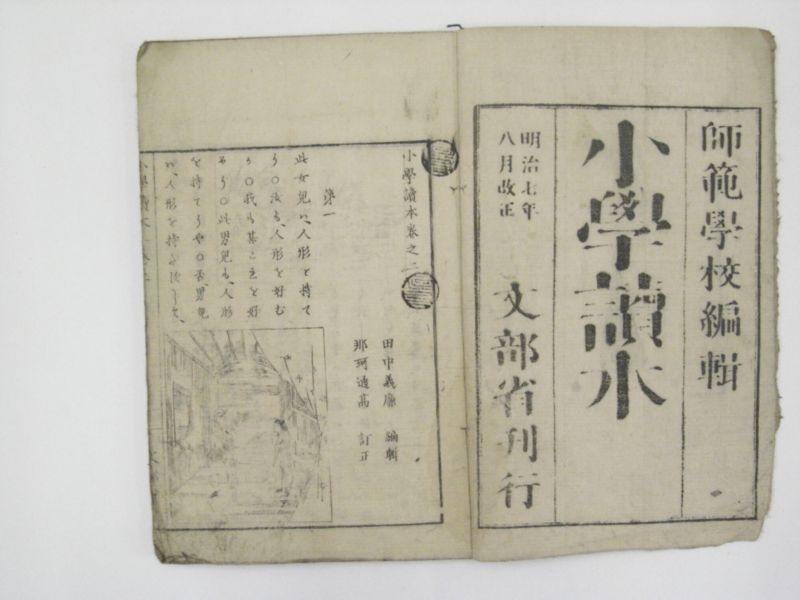 師範學校編輯
小學讀本
明治七年
八月改正
文部省刊行
小學讀本卷之二
田中義廉 編輯
那珂通高 訂正
第一
此女兒ハ、人形を持て
り〇汝も、人形を好む
か〇我も甚これを好
めり〇此男兒も、人形
を持てりや〇否、男兒
ハ、人形を持